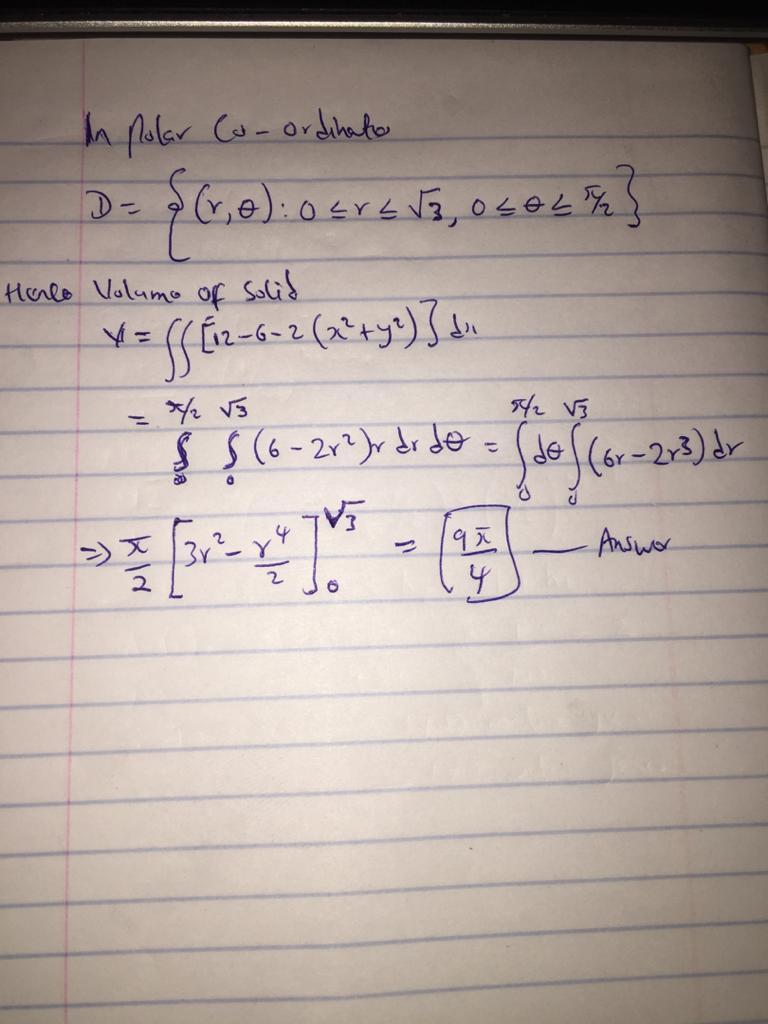 In Polar Co-ordinates
D = {(r, θ): 0 ≤ r ≤ √3, 0 ≤ θ ≤ π/2}
Hence Volume of Solid
V = ∬ [12-6-2(x²+y²)] dx
= ∫₀^{π/2} ∫₀^{√3} (6-2r²)r dr dθ = ∫₀^{π/2} dθ ∫₀^{√3} (6r-2r³) dr
⇒ π/2 [3r² - r⁴/2]₀^{√3} = 9π/4 — Answer